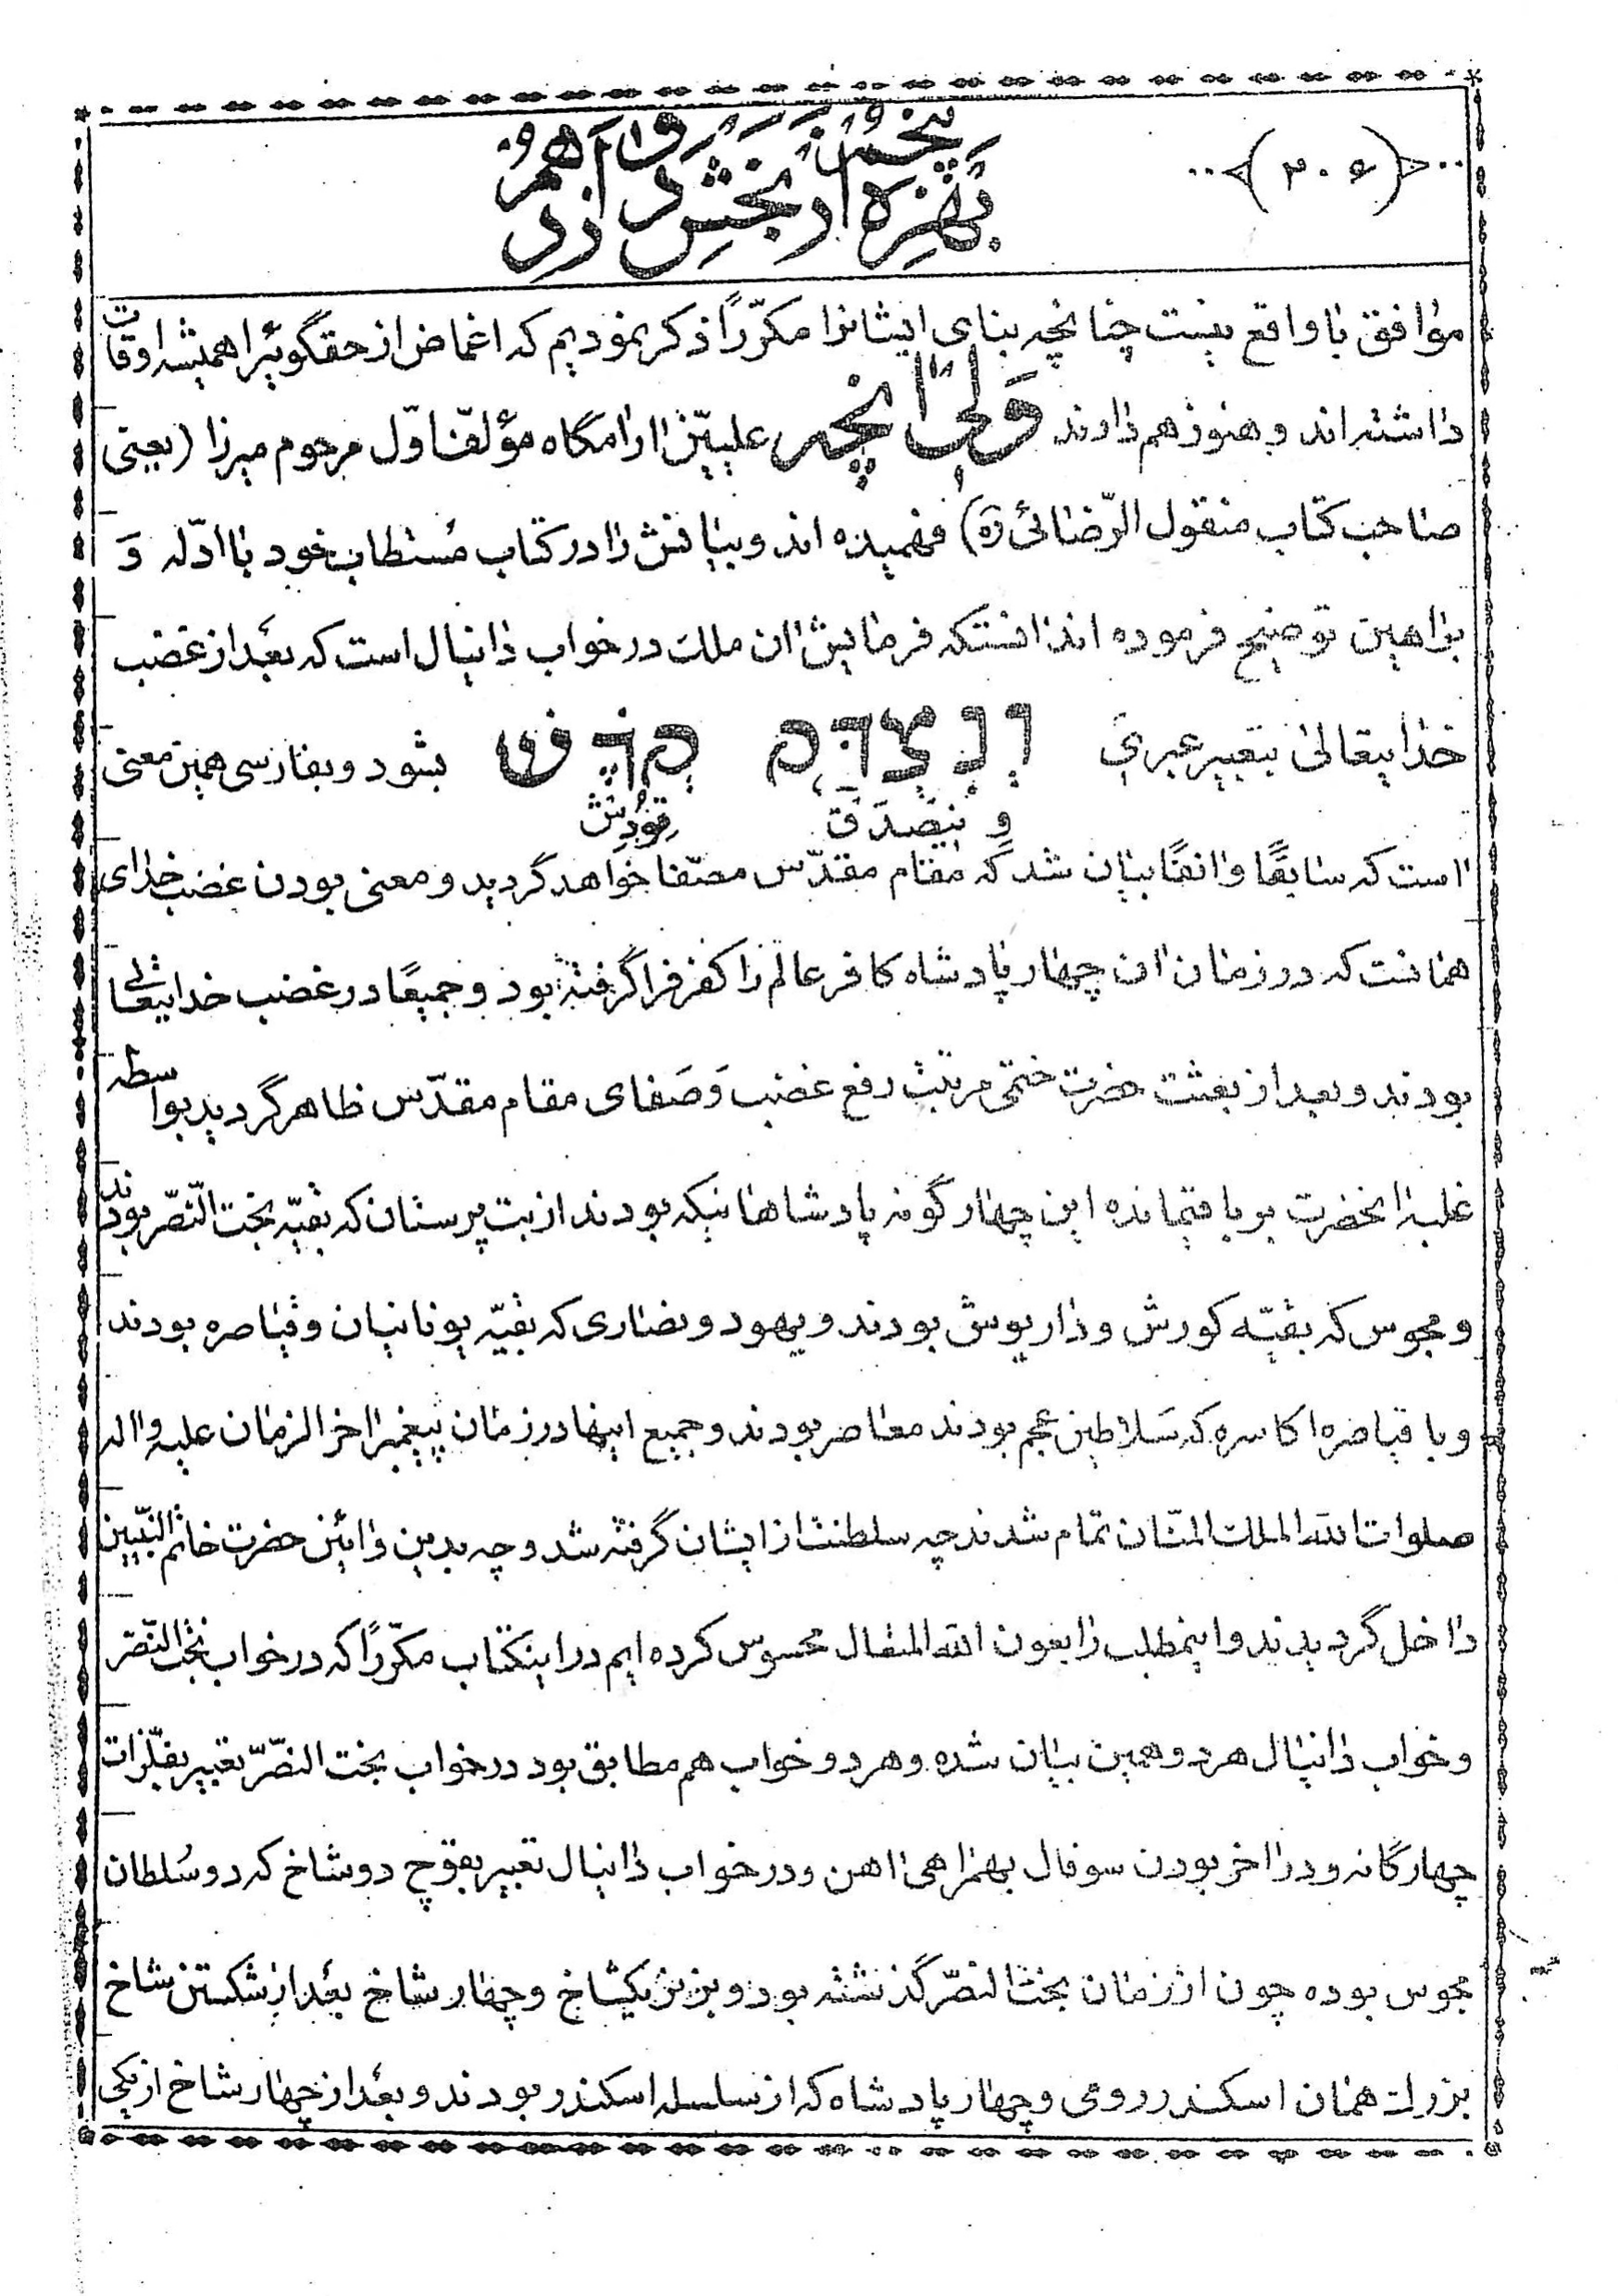 (۲۰۶)
موافق با واقع نیست چنانچه بنای ایشانرا مکرّراً ذکر نمودیم که اغماض از حقگوئیرا همیشه اوقات
داشته‌اند و هنوز هم دارند ولی آنچه علیین آرامگاه مؤلف اوّل مرحوم میرزا (یعنی
صاحب کتاب منقول الرّضائی ره) فهمیده‌اند و بیاناتش را در کتاب مستطاب خود با ادّله وَ
براهین توضیح فرموده‌اند اینستکه فرمایش ان ملک در خواب دانیال است که بعد از غضب
خدایتعالی بتعبیر عبری ונצדק קדש بشود و بفارسی همین معنی
وِ نیصدَق قودِش
است که سابقًا و انفًا بیان شد که مقام مقدّس مصفّا خواهد گردید و معنی بودن غضب خدای
همانست که در زمان ان چهار پادشاه کافر عالم را کفر فرا گرفته بود و جمیعًا در غضب خدایتعالی
بودند و بعد از بعثت حضرت ختمی مرتبت رفع غضب وَ صَفای مقام مقدّس ظاهر گردید بواسطه
غلبه انحضرت بر باقیمانده این چهار گونه پادشاهانیکه بودند از بت پرستان که بقیّه بخت النّصّر بودند
و مجوس که بقیّه کورش و داریوش بودند و یهود و نصاری که بقیّه یونانیان و قیاصره بودند
و با قیاصره اکاسره که سَلاطین عجم بودند معاصر بودند و جمیع اینها در زمان پیغمبر اخر الزمان علیه واله
صلوات الله الملک المنّان تمام شدند چه سلطنت از ایشان گرفته شد و چه بدین و ائین حضرت خاتم النّبیین
داخل گردیدند و اینمطلب را بعون الله المتعال محسوس کرده‌ایم در اینکتاب مکرّراً که در خواب بخت النّصّر
و خواب دانیال هر دو همین بیان شده و هر دو خواب هم مطابق بود در خواب بخت النصّر تعبیر بفلزّات
چهارگانه و در اخر بودن سوفال بهمراهی اهن و در خواب دانیال تعبیر بقوچ دو شاخ که دو سُلطان
مجوس بوده چون از زمان بخت النصّر گذشته بود و بز نر یکشاخ و چهار شاخ بعد از شکستن شاخ
بزرک همان اسکندر رومی و چهار پادشاه که از سلسله اسکندر بودند و بعد از چهار شاخ از یکی